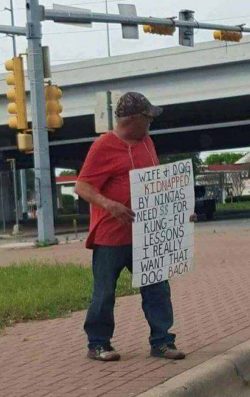 WIFE & DOG
KIDNAPPED
BY NINJAS
NEED $$ FOR
KUNG-FU
LESSONS
I REALLY
WANT THAT
DOG BACK